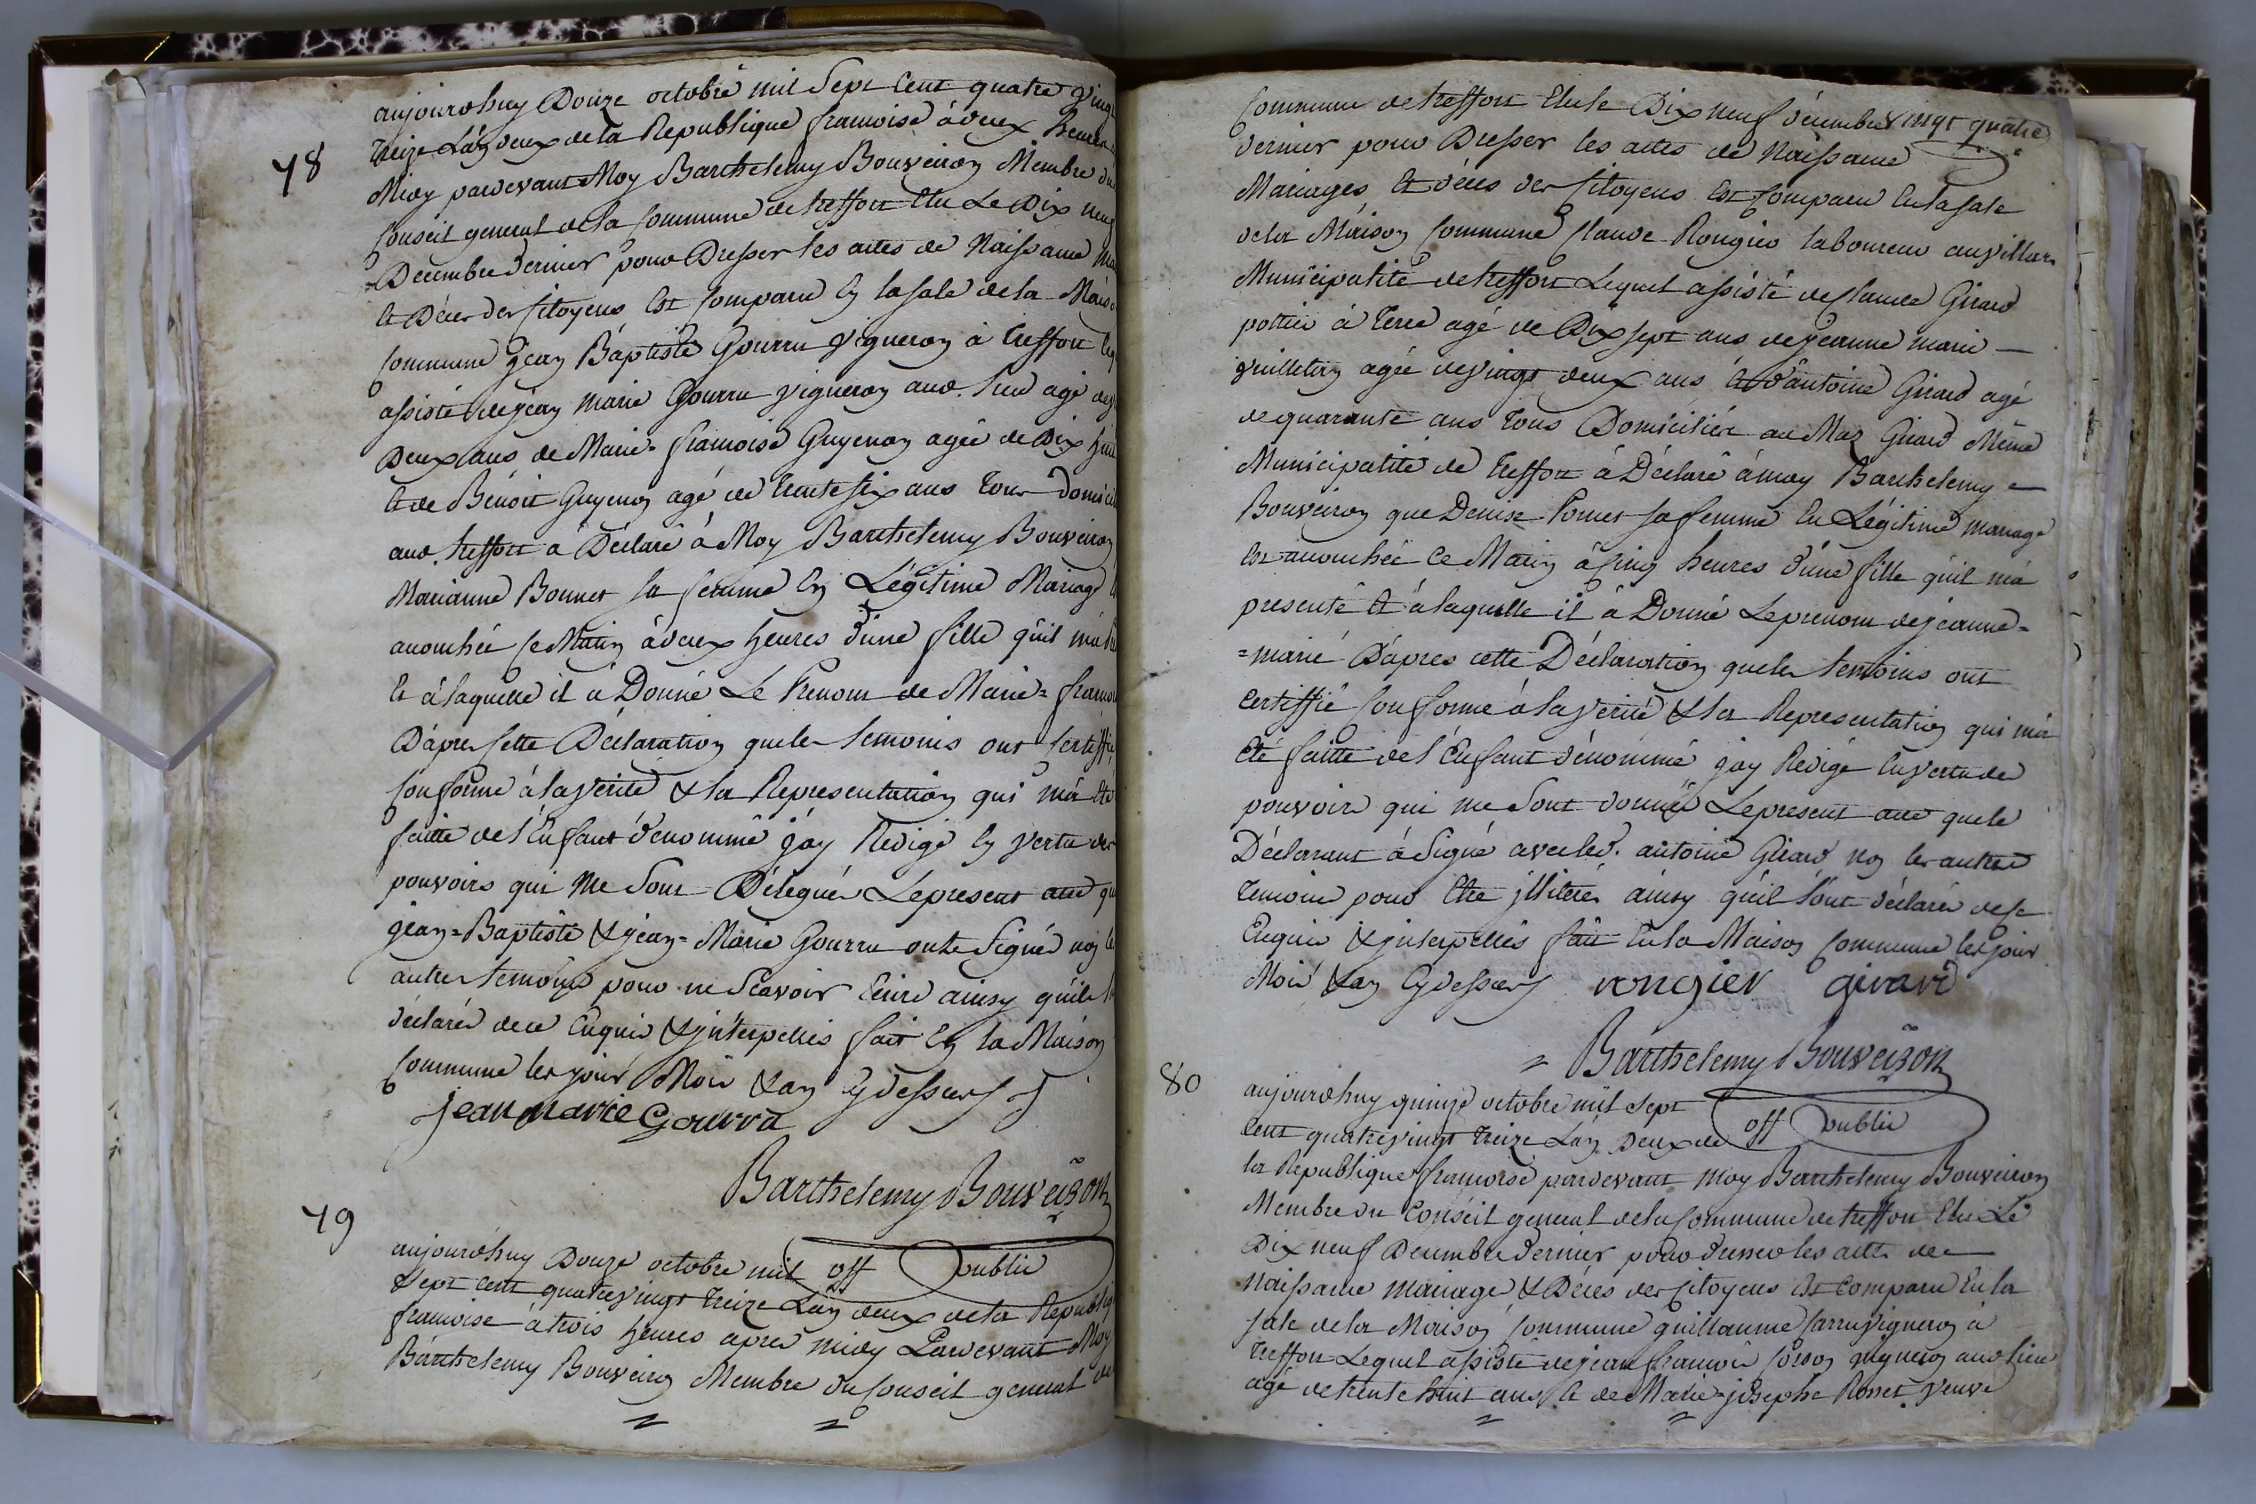 78
aujourdhuy Douze octobre mil Sept Cent quatre ving
treize L'an deux de la Republique francoise à deux heures
Midy pardevant Moy Barthelemy Bouveiron Membre du
Conseil general de la Commune de treffort Elu Le Dix neuf
Decembre dernier pour Dresser les actes de Naissance ma
et Déces des Citoyens Est Comparu En la sale de la Maiso
Commune Jean Baptiste Gourru vigneron à treffort leq
assisté de jean marie Gourru vigneron aud. lieu agé de
Deux ans de Marie= francoise Guyenon agée de Dix huit
et de Bénoit Guyenon agé de trente six ans tous domicil
aud. treffort a Déclaré à Moy Barthelemy Bouveiron
Marianne Bonnet sa femme En Légitime Mariage
acouchée ce Matin à deux heures d'une fille quil m'a
Et à laquelle il a Donné Le Prenom de Marie= franco
D'apres cette Déclaration que les temoins ont certiffié
Conforme à la verité & la Representation qui m'a été
faitte de l'Enfant dénommé j'ay Redigé En vertu des
pouvoirs qui Me Sont Délegués Le present acte que
jean=Baptiste & jean=Marie Gourru ont Signé non les
autres temoins pour ne Scavoir Ecrire ainsy quils
déclarés de ce Enquis & jnterpellés fait En la Maison
Commune les jour Mois & an Cydessus
jean marie Gourru
Barthelemy Bouveiron
off public
79
aujourdhuy Douze octobre mil
Sept cent quatrevingt treize L'an deux de la Republiq
francoise à trois heures apres midy Pardevant Moy
Barthelemy Bouveiron Membre du Conseil general de
vingt quatre
Commune de treffort Elu le Dix neuf décembre
dernier pour Dresser les actes de Naissance
Mariages Et déces des Citoyens Est Comparu En la sale
de la Maison Commune Claude Rongier laboureur au villars
Municipalité de treffort Lequel assisté de Claude Girard
pottier à terre agé de Dix sept ans de jeanne marie —
vuilletin agée de vingt deux ans et d'antoine Girard agé
de quarante ans tous Domiciliés au Mas Girard Même
Municipalité de treffort à Déclaré à moy Barthelemy —
Bouveiron que Denise Pomet sa femme En Légitime mariage
Est acouchée Ce Matin à Cinq heures d'une fille quil m'a
presenté Et à laquelle il à Donné Le prenom de jeanne=
=marie D'apres cette Déclaration que les temoins ont
certiffié Conforme à la verité & la Representation qui m'a
été faitte de l'Enfant dénommé j'ay Redigé En vertu des
pouvoirs qui me Sont donnés Le present acte que le
Déclarant à Signé avec led. antoine Girard non les autres
temoins pour Etre jlliterés ainsy quil Sont déclarés de ce
Enquis & jnterpellés fait En la Maison Commune les jour
Mois & an Cydessus rongier girard
= Barthelemy Bouveiron
off public
80
aujourdhuy quinze octobre mil Sept
Cent quatrevingt treize L'an Deux de
la Republique francoise pardevant moy Barthelemy Bouveiron
Membre du Conseil general de la Commune de treffort Elu Le
Dix neuf Decembre dernier pour dresser les actes de
Naissance Mariage & Déces des Citoyens Est Comparu En la
sale de la Maison Commune guillaume Carru vigneron à
treffort Lequel assisté de jean francois vigneron aud. lieu
agé de trente huit ans & de Marie josephe Rosset veuve